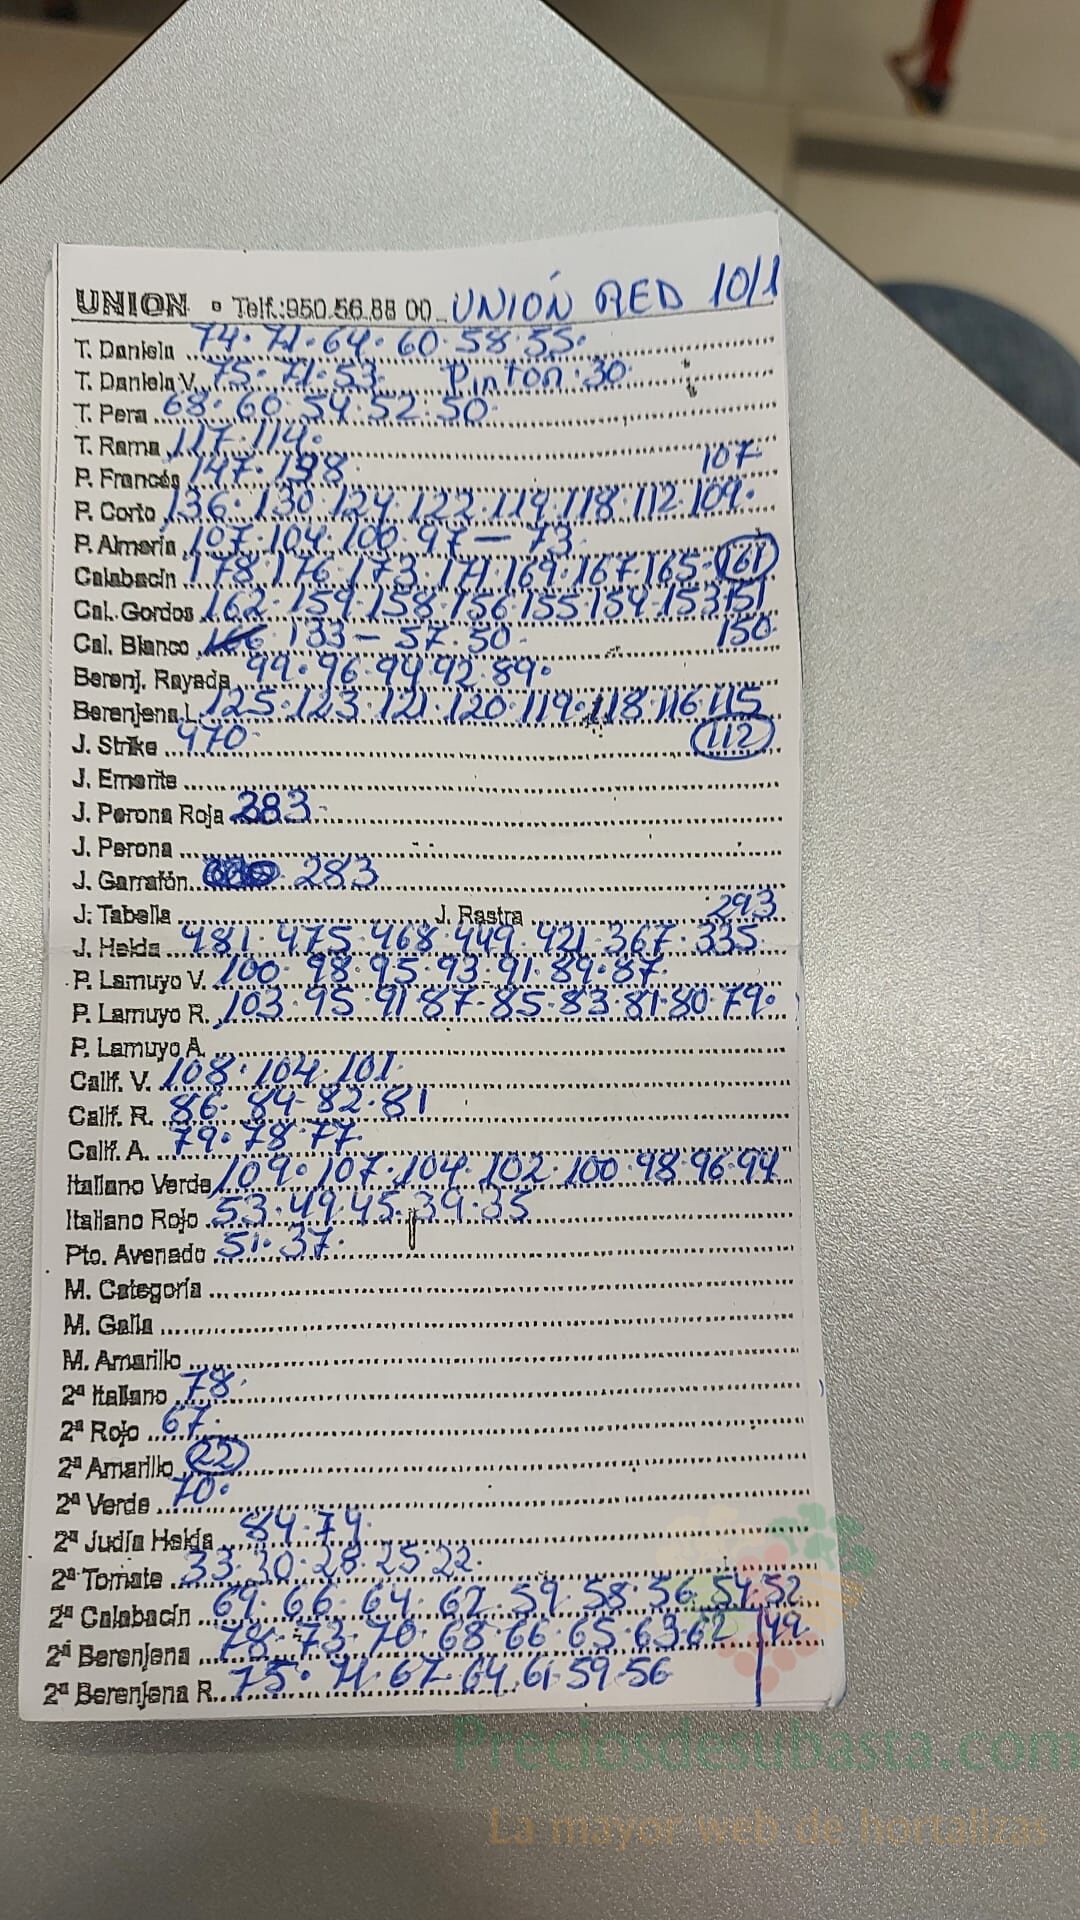 UNION • Telf.:950.56.88 00 UNIÓN RED 10/1
T. Daniela 74·71·64·60·58·55·
T. Daniela V. 75·71·53· Pinton·30·
T. Pera 68·60·54·52·50·
T. Rama 117·114·
P. Francés 147·198· 107·
P. Corto 136·130·124·122·119·118·112·109·
P. Almería 107·104·100·97—73·
Calabacín 178·176·173·171·169·167·165·161
Cal. Gordos 162·159·158·156·155·154·153·151
Cal. Blanco 133—57·50· 150·
Berenj. Rayada 99·96·94·92·89·
Berenjena L. 125·123·121·120·119·118·116·115
J. Strike 470· 112
J. Emerite
J. Perona Roja 283·
J. Perona
J. Garrafón 283
J. Tabella J. Rastra 293
J. Helda 481·475·468·449·421·367·335·
P. Lamuyo V. 100·98·95·93·91·89·87·
P. Lamuyo R. 103·95·91·87·85·83·81·80·79·
P. Lamuyo A.
Calif. V. 108·104·101·
Calif. R. 86·84·82·81
Calif. A. 79·78·77·
Italiano Verde 109·107·104·102·100·98·96·94
Italiano Rojo 53·49·45·39·35
Pto. Avenado 51·37·
M. Categoría
M. Galia
M. Amarillo
2ª Italiano 78·
2ª Rojo 67·
2ª Amarillo 22
2ª Verde 70·
2ª Judía Helda 84·74·
2ª Tomate 33·30·28·25·22·
2ª Calabacín 69·66·64·62·59·58·56·54·52
2ª Berenjena 78·73·70·68·66·65·63·62 49
2ª Berenjena R. 75·71·67·64·61·59·56
Preciosdesubasta.com
La mayor web de hortalizas